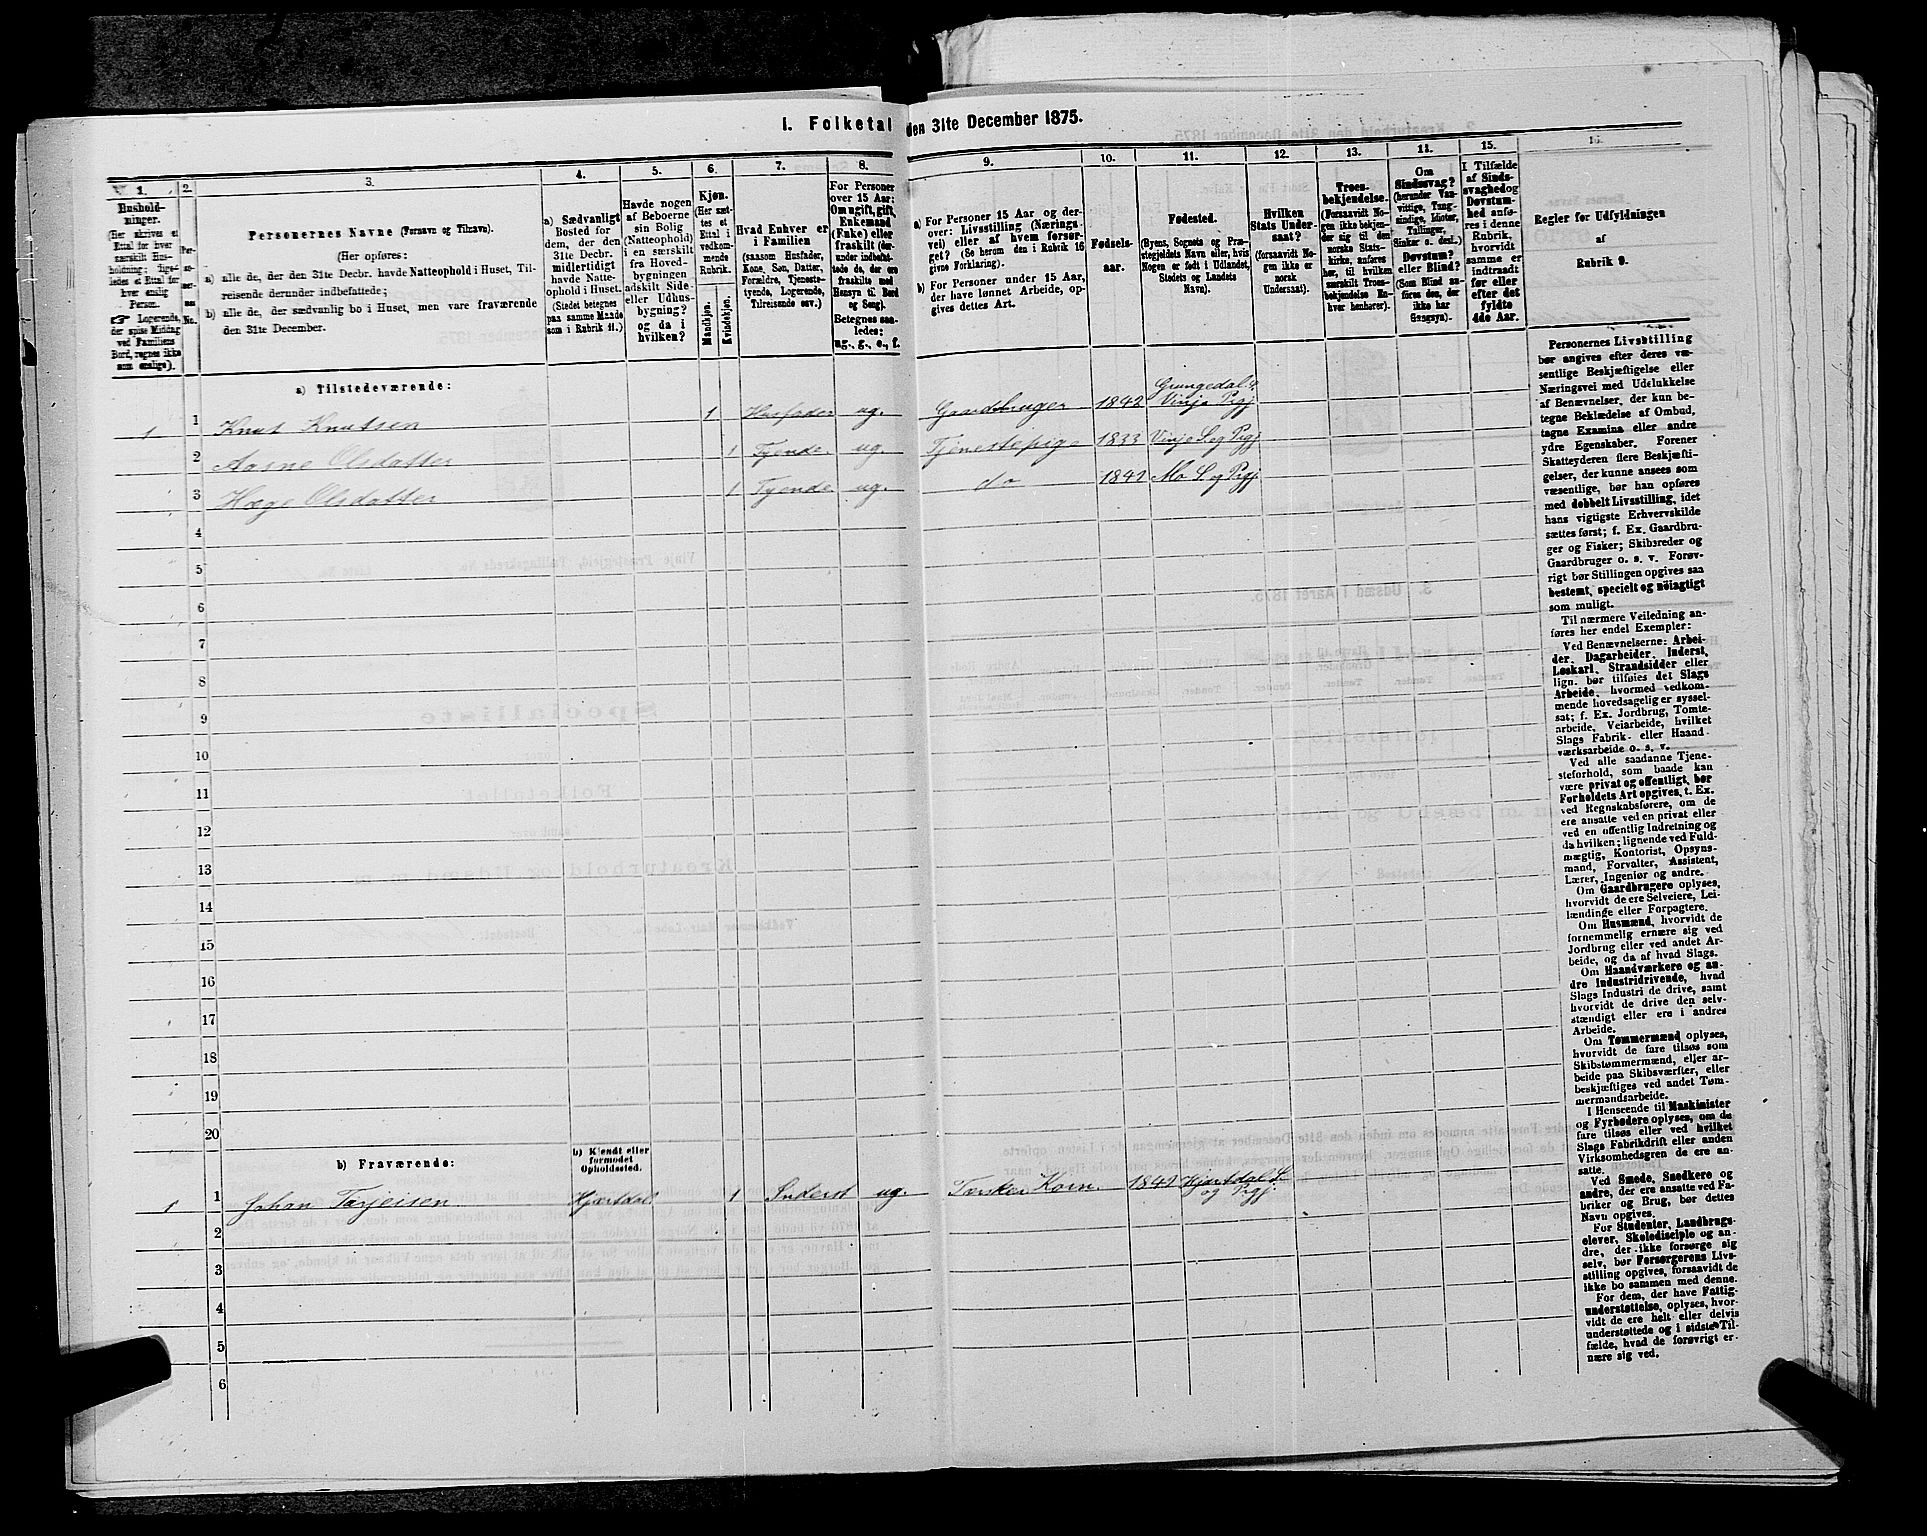 I. Folketal den 31te December 1875.
1.
2.
3.
4.
5.
6.
7.
8.
9.
10.
11.
12.
13.
14.
15.
16.
Hushold-
ninger.
(Her skrives et
Ettal for hver
særskilt Hus-
holdning; lige-
ledes et Ettal for
hver enslig
Person.
☞ Logerende,
der spise Middag
ved Familiens
Bord, regnes ikke
som enslige).
Per-
so-
ner-
nes
No.
Personernes Navne (Fornavn og Tilnavn).
(Her opføres:
a) alle de, der den 31te Decbr. havde Natteophold i Huset, Til-
reisende derunder indbefattede;
b) alle de, der sædvanlig bo i Huset, men vare fraværende
den 31te December.
a) Sædvanligt
Bosted for
dem, der den
31te Decbr.
midlertidigt
havde Natte-
ophold i Huset.
(Stedet betegnes
paa samme Maade
som i Rubrik 11.)
Havde nogen
af Beboerne
sin Bolig
(Natteophold)
i en særskilt
fra Hoved-
bygningen
adskilt Side-
eller Udhus-
bygning?
og da i
hvilken?
Kjøn.
(Her sæt-
tes et
Ettal i
vedkom-
mende
Rubrik.
Mandkjøn.
Kvindekjøn.
Hvad Enhver er
i Familien
(saasom Husfader,
Kone, Søn, Datter,
Forældre, Tjeneste-
tyende, Logerende,
Tilreisende osv.)
For Personer
over 15 Aar:
Om ugift, gift,
Enkemand
(Enke) eller
fraskilt (der-
under indbefat-
tede de, der ere
fraskilte med
Hensyn til Bord
og Seng).
Betegnes saa-
ledes:
ug., g., e., f.
a) For Personer 15 Aar og der-
over: Livsstilling (Nærings-
vei) eller af hvem forsør-
get? (Se herom den i Rubrik 16
givne Forklaring).
b) For Personer under 15 Aar,
der have lønnet Arbeide, op-
gives dettes Art.
Fødsels-
aar.
Fødested.
(Byens, Sognets og Præ-
stegjeldets Navn eller, hvis
Nogen er født i Udlandet,
Stedets og Landets
Navn).
Hvilken
Stats Under-
saat?
(forsaavidt No-
gen ikke er
norsk
Undersaat).
Troes-
bekjendelse.
(Forsaavidt No-
gen ikke bekjen-
der sig til den
norske Stats-
kirke, anføres
her, til hvilken
særskilt Troes-
bekjendelse En-
hver henhører).
Om
Sindssvag?
(herunder Van-
vittige, Tung-
sindige, Idioter,
Tullinger,
Sinker o. desl.)
Døvstum?
eller Blind?
(Som Blind an-
føres den, der
ikke har
Gangsyn).
I Tilfælde
af Sinds-
svaghed og
Døvstum-
hed anfø-
res i denne
Rubrik,
hvorvidt
samme er
indtraadt
før eller
efter det
fyldte
4de Aar.
Regler for Udfyldningen
af
Rubrik 9.
a) Tilstedeværende:
1 1 Knut Knutsen 1 Husfader ug. Gaardbruger 1842 Grungedal S. Vinje Prgj
2 Aasne Olsdatter 1 Tyende. ug. Tjenestepige 1833 Vinje S. og Prgj
3 Hæge Olsdatter 1 Tyende ug. do 1841 Mo S. og Prgj.
4
5
6
7
8
9
10
11
12
13
14
15
16
17
18
19
20
b) Fraværende:
b) Kjendt eller
formodet
Opholdssted.
1 1 Johan Tarjeisen Hjærtdal 1 Inderst ug. Tærsker Korn. 1841 Hjærtdal S.
og Prgj.
2
3
4
5
6
Personernes Livsstilling
bør angives efter deres væ-
sentlige Beskjæftigelse eller
Næringsvei med Udelukkelse
af Benævnelser, der kun be-
tegne Beklædelse af Ombud,
tagne Examina eller andre
ydre Egenskaber. Forener
Skatteyderen flere Beskjæfti-
gelser, der kunne ansees som
væsentlige, bør han opføres
med dobbelt Livsstilling, idet
hans vigtigste Erhvervskilde
sættes først; f. Ex. Gaardbru-
ger og Fisker; Skibsreder og
Gaardbruger o. s. v. Forøv-
rigt bør Stillingen opgives saa
bestemt, specielt og nøiagtigt
som muligt.
Til nærmere Veiledning an-
føres her endel Exempler:
Ved Benævnelserne: Arbei-
der, Dagarbeider, Inderst,
Løskarl, Strandsidder eller
lign. bør tilføies det Slags
Arbeide, hvormed vedkom-
mende hovedsagelig er syssel-
sat; f. Ex. Jordbrug, Tomte-
arbeide, Veiarbeide, hvilket
Slags Fabrik- eller Haand-
værksarbeide o. s. v.
Ved alle saadanne Tjene-
steforhold, som baade kan
være privat og offentligt, bør
Forholdets Art opgives, t. Ex.
ved Regnskabsførere, om de
ere ansatte ved en privat eller
ved en offentlig Indretning og
da hvilken; lignende ved Fuld-
mægtig, Kontorist, Opsyns-
mand, Forvalter, Assistent,
Lærer, Ingeniør og andre.
Om Gaardbrugere oplyses,
hvorvidt de ere Selveiere, Lei-
lændinge eller Forpagtere.
Om Husmænd, hvorvidt de
fornemmelig ernære sig ved
Jordbrug eller ved andet Ar-
beide, og da af hvad Slags.
Om Haandværkere og an-
dre Industridrivende, hvad
Slags Industri de drive, samt
hvorvidt de drive den selv-
stændigt eller ere i andres
Arbeide.
Om Tømmermænd oplyses,
hvorvidt de fare tilsøs som
Skibstømmermænd, eller ar-
beide paa Skibsværfter, eller
beskjæftiges ved andet Tøm-
mermandsarbeide.
I Henseende til Maskinister
og Fyrbødere oplyses, om de
fare tilsøs eller ved hvilket
Slags Fabrikdrift eller anden
Virksomhedsgren de ere an-
satte.
Ved Smede, Snedkere og
andre, der ere ansatte ved Fa-
briker og Brug, bør dettes
Navn opgives.
For Studenter, Landbrugs-
elever, Skoledisciple og an-
dre, der ikke forsørge sig
selv, bør Forsørgerens Livs-
stilling opgives, forsaavidt de
ikke bo sammen med denne.
For dem, der have Fattig-
understøttelse, oplyses, hvor-
vidt de ere helt eller delvis
understøttede og i sidste Til-
fælde, hvad de forøvrigt er-
nære sig ved.